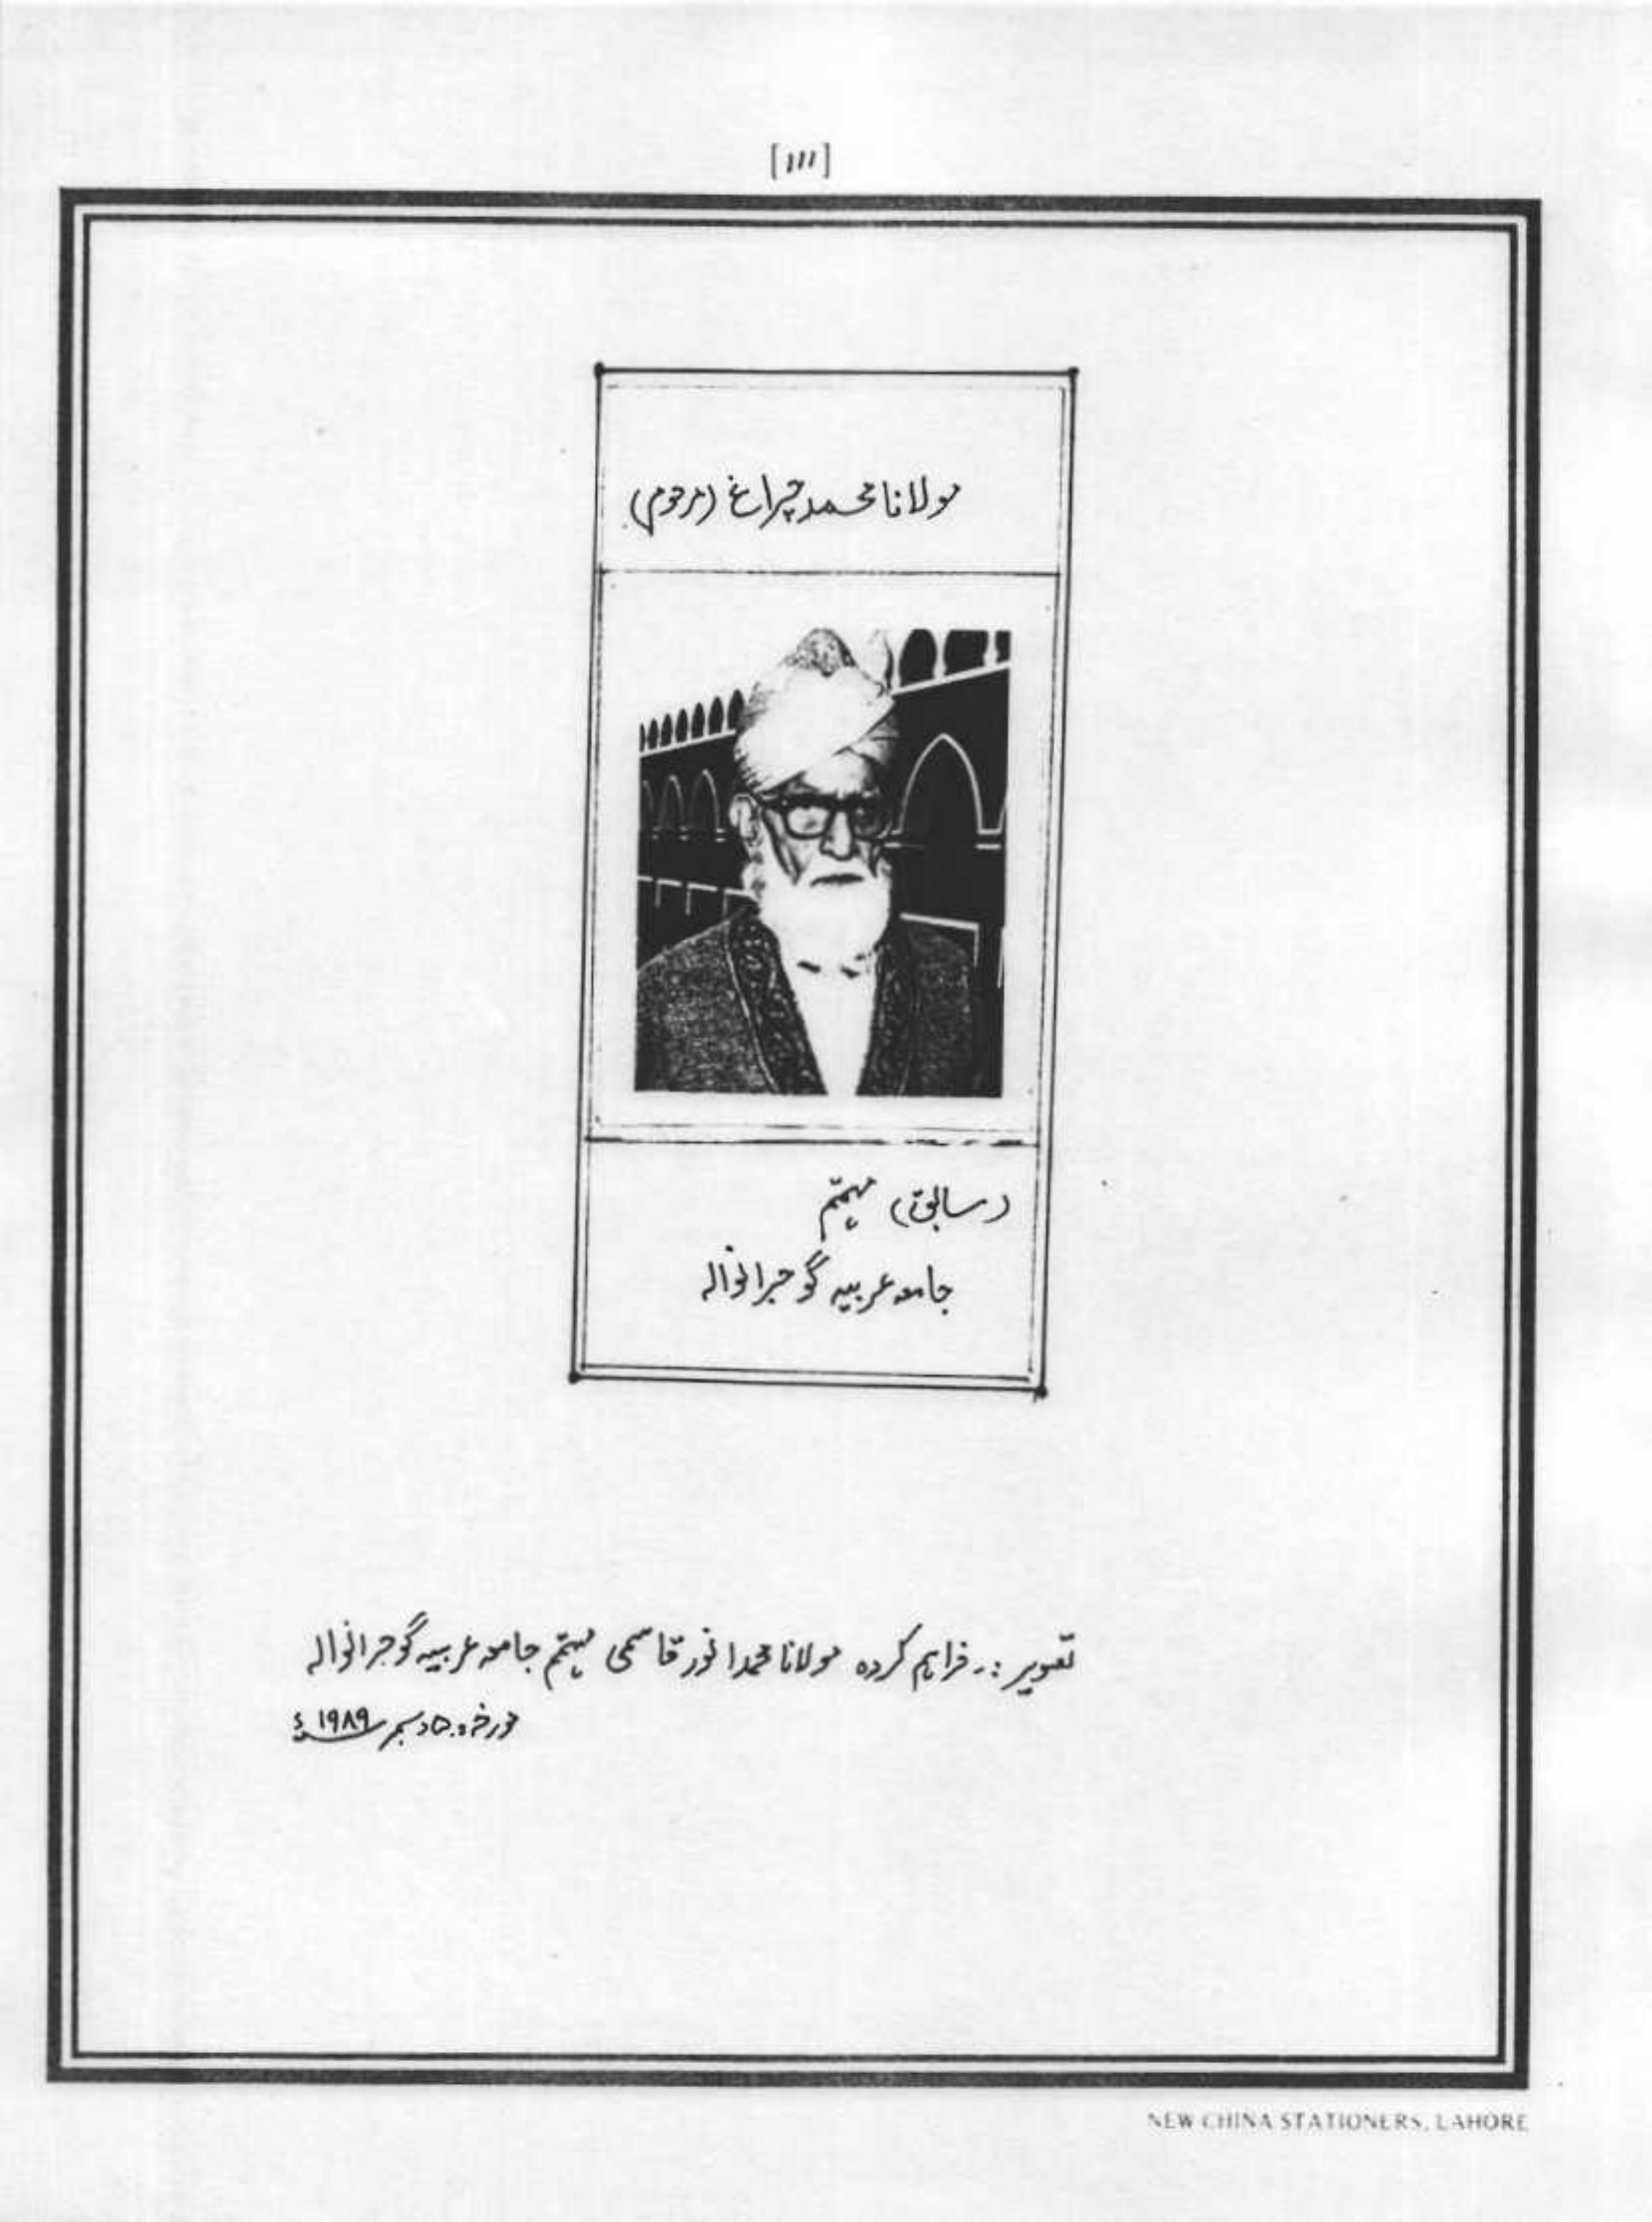 [۱۱۱]
مولانا محمد چراغ (مرحوم)
(سابق) مہتمم
جامعہ عربیہ گوجرانوالہ
تصویر :۔ فراہم کردہ مولانا محمد انور قاسمی مہتمم جامعہ عربیہ گوجرانوالہ
مورخہ دسمبر ۱۹۸۹ء
NEW CHINA STATIONERS, LAHORE